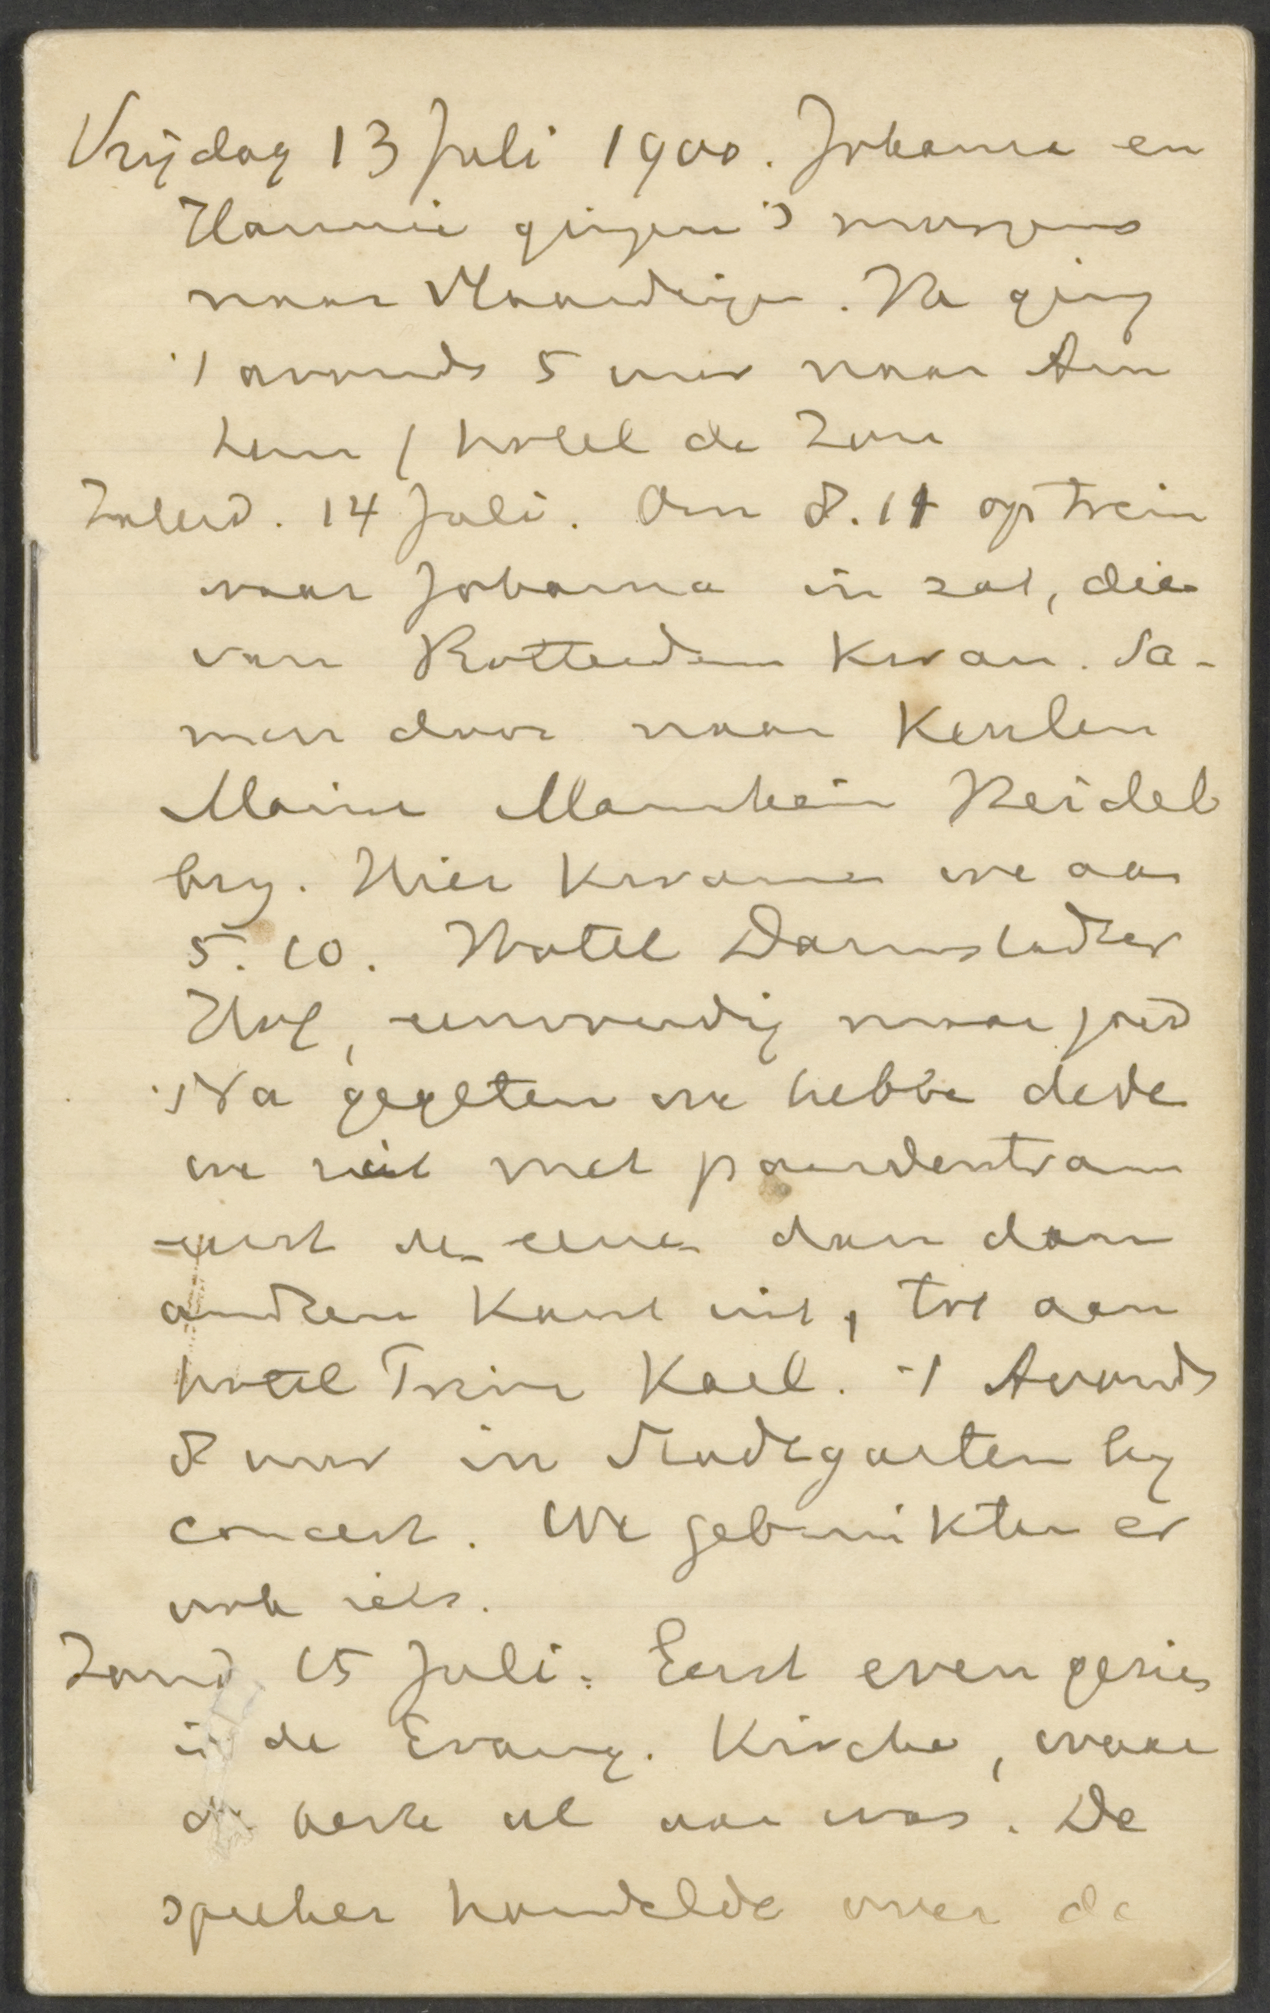 Vrijdag 13 Juli 1900. Johanna en
Hannie gingen 's morgens
naar Vlaardingen. Ik ging
's avonds 5 uur naar Arn
hem / hotel de Zon
Zaterd. 14 Juli. Om 8.11 op trein
waar Johanna in zat, die
van Rotterdam kwam. Sa-
men door naar Keulen
Mainz Mannheim Heidel
berg. Hier kwamen we aan
5.10. Hotel Darmstadter
Hof, eenvoudig maar goed
Na gegeten we hebbe dede
we rit met paardentram
eerst de eene dan dan
anderen kant uit, tot aan
hotel Kael. 's Avonds
8 uur in Stadtgarten by
concert. We gebruikten er
ook iets.
Zond 15 Juli. Eerst even gezien
in de Evang. Kirche, waar
de kerk al aan was. De
spreker handelde over de